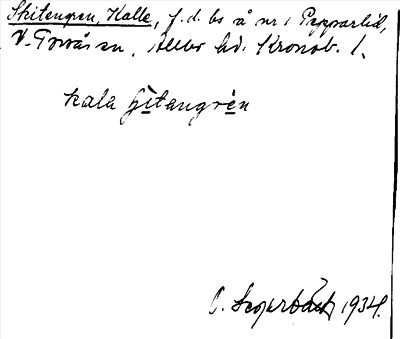 Skitengren, Kalle, f.d. bs å nr 1 Pepparlid,
V. Torsås sn, Allbo hd. Kronob. l.
kala ʃìtangrèn
O. Segerbäck 1934.